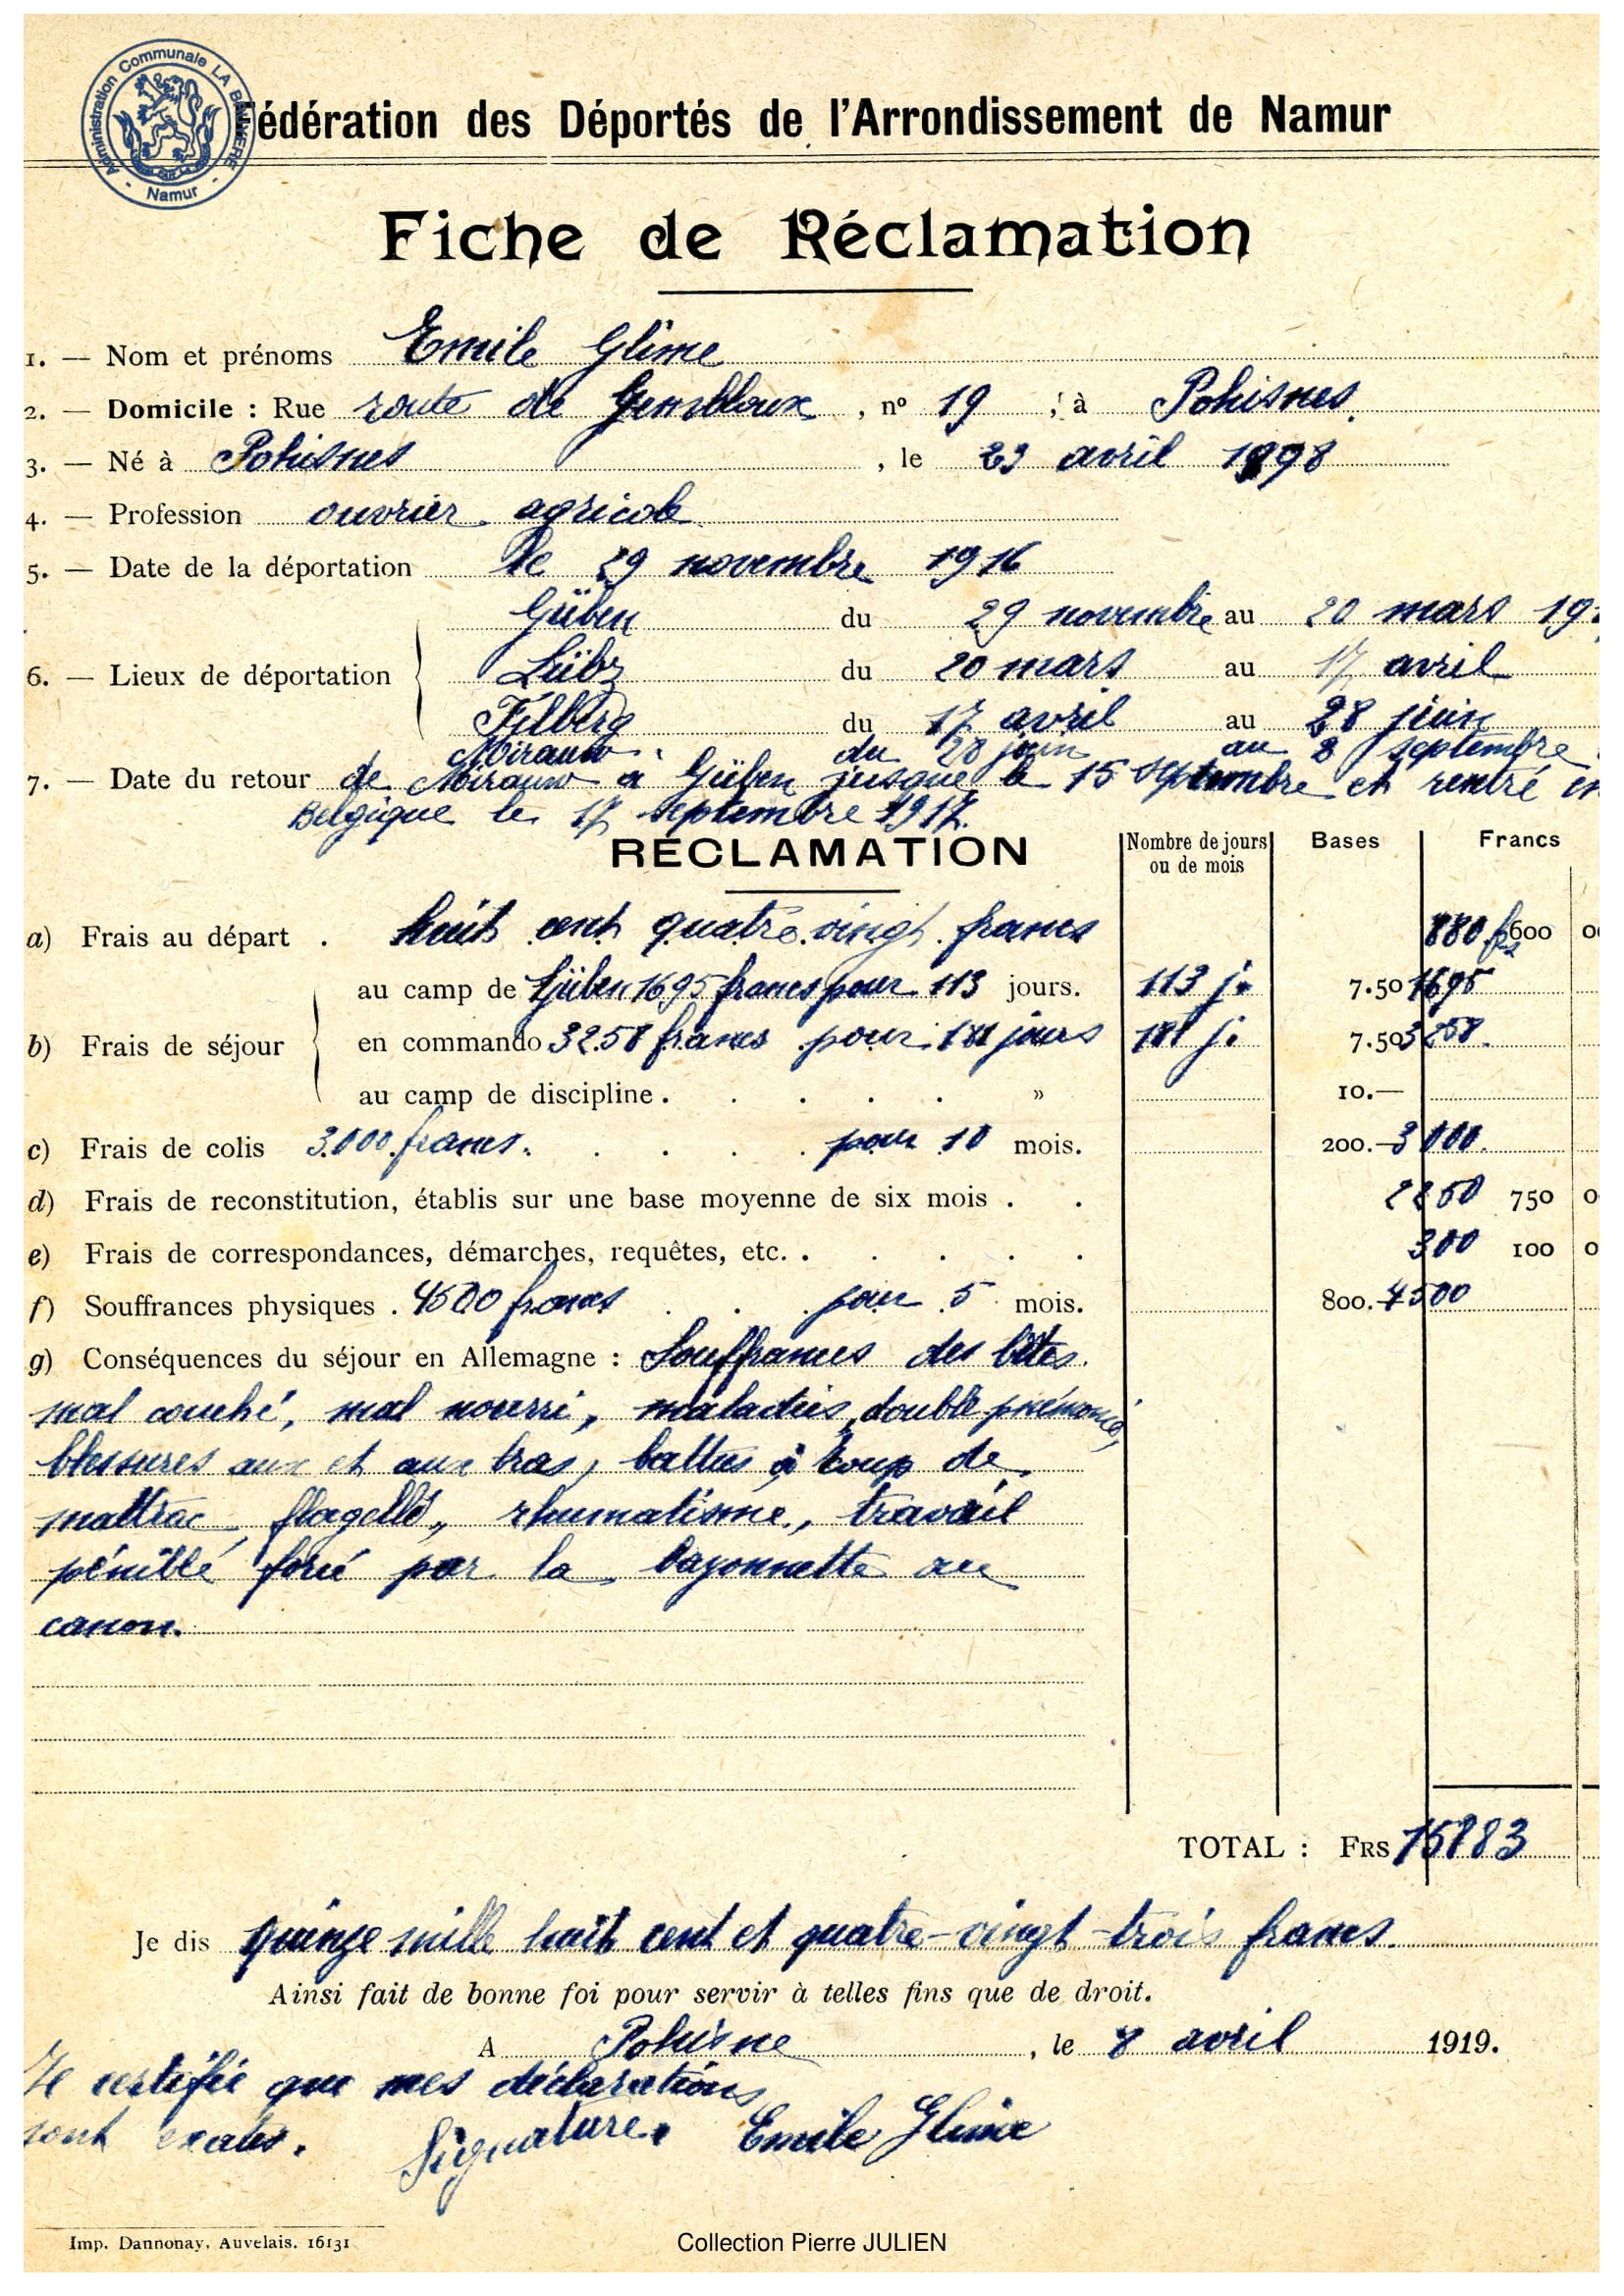 Administration Communale LA BRUYERE
- Namur -
Fédération des Déportés de l'Arrondissement de Namur
Fiche de Réclamation
1. — Nom et prénoms Emile Glime
2. — Domicile : Rue route de Gembloux , nº 19 , à Rhisnes.
3. — Né à Rhisnes , le 23 avril 1898
4. — Profession ouvrier agricole
5. — Date de la déportation le 29 novembre 1916
Güben du 29 novembre au 20 mars
6. — Lieux de déportation Lübz du 20 mars au 17 avril
Filberg du 17 avril au 28 juin
Mirauw du 28 juin au 8 septembre
7. — Date du retour de Mirauw a Güben jusque le 15 septembre et rentré en
Belgique le 17 septembre 1917.
RÉCLAMATION
Nombre de jours ou de mois
Bases
Francs
a) Frais au départ . huit cent quatre vingt francs 880 frs 600
au camp de Güben 1695 francs pour 113 jours. 113 j. 7.50 1695
b) Frais de séjour en commando 3258 francs pour 181 jours 181 j. 7.50 3258.
au camp de discipline . . . . . » 10.—
c) Frais de colis 3.000 francs. . . . . pour 10 mois. 200.— 3000.
d) Frais de reconstitution, établis sur une base moyenne de six mois . . 2250 750
e) Frais de correspondances, démarches, requêtes, etc. . . . . 300 100
f) Souffrances physiques . 4500 francs . . . pour 5 mois. 800.— 4500
g) Conséquences du séjour en Allemagne : Souffrances des bêtes.
mal couché, mal nourri, maladies, double
blessures aux et aux bras, battus à coup de
mattrac, flagellé, rhumatisme, travail
pénible forcé par la bayonnette au
canon.
TOTAL : FRS 15883
Je dis quinze mille huit cent et quatre-vingt-trois francs.
Ainsi fait de bonne foi pour servir à telles fins que de droit.
A Rhisne , le 8 avril 1919.
Je certifie que mes déclarations
sont exates. Signature. Emile Glime
Imp. Dannonay, Auvelais. 16131
Collection Pierre JULIEN